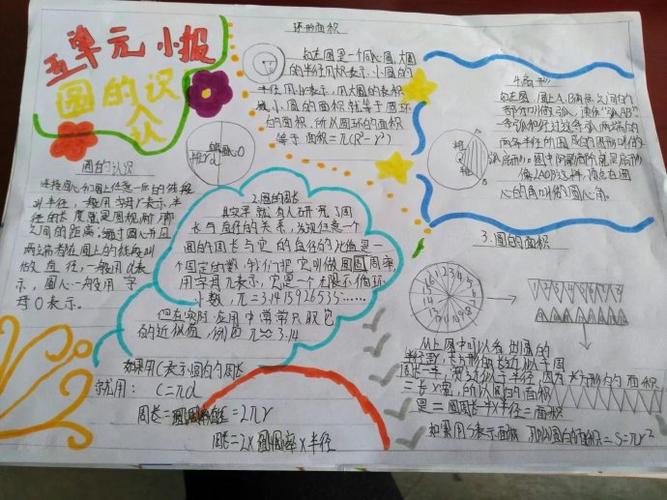 五单元小报
圆的认识
圆的认识
连接圆心和圆上任意一点的线段
叫半径，一般用字母r表示，半
径的长度就是圆规两脚
之间的距离。通过圆心并且
两端都在圆上的线段叫
做直径，一般用d表
示，圆心一般用字
母O表示。
环的面积
右图是一个同心圆，大圆
的半径用R表示，小圆的
半径用r表示，用大圆的面积
减小圆的面积就等于圆环
的面积，所以圆环的面积
等于 面积=π(R²-r²)
2.圆的周长
人研究了周
长与直径的关系，发现任意一个
圆的周长与它的直径的比值是一
个固定的数，我们把它叫做圆周率，
用字母π表示，它是一个无限不循环
小数，π=3.1415926535……
但在实际应用中常常只取它
的近似值，例如π≈3.14
如果用C表示圆的周长
就用：C=πd
周长=2πr
周长=2×圆周率×半径
4.扇形
右图，圆上A、B两点之间的
部分叫做弧，读作“弧AB”
一条弧和经过这条弧两端的
两条半径所围成的图形叫
扇形。图中阴影部分就是扇形
像∠AOB这样，顶点在圆
心的角叫做圆心角。
3.圆的面积
从上图中可以看出圆的
半径，长方形的长近似于周
长一半，宽近似于半径，因为长方形的面积
=长×宽，所以圆的面积
是 圆周长一半×半径=面积
如果用S表示面积，那么圆的面积=S=πr²